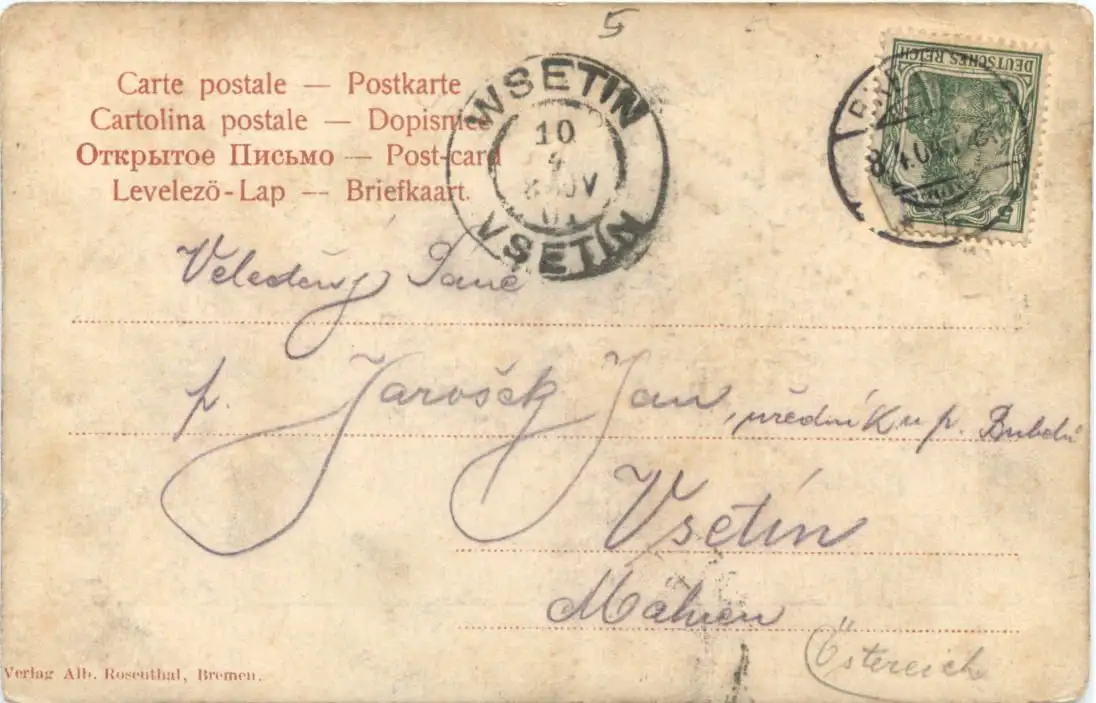 5
Carte postale — Postkarte
Cartolina postale — Dopisnice
Открытое Письмо — Post-card
Levelező-Lap — Briefkaart.
WSETIN
10
4
VSETÍN
DEUTSCHES REICH
Veleděný Páne
p. Jarošek Jan, úředník u p.
Vsetín
Mähren
Östereich
Verlag Alb. Rosenthal, Bremen.